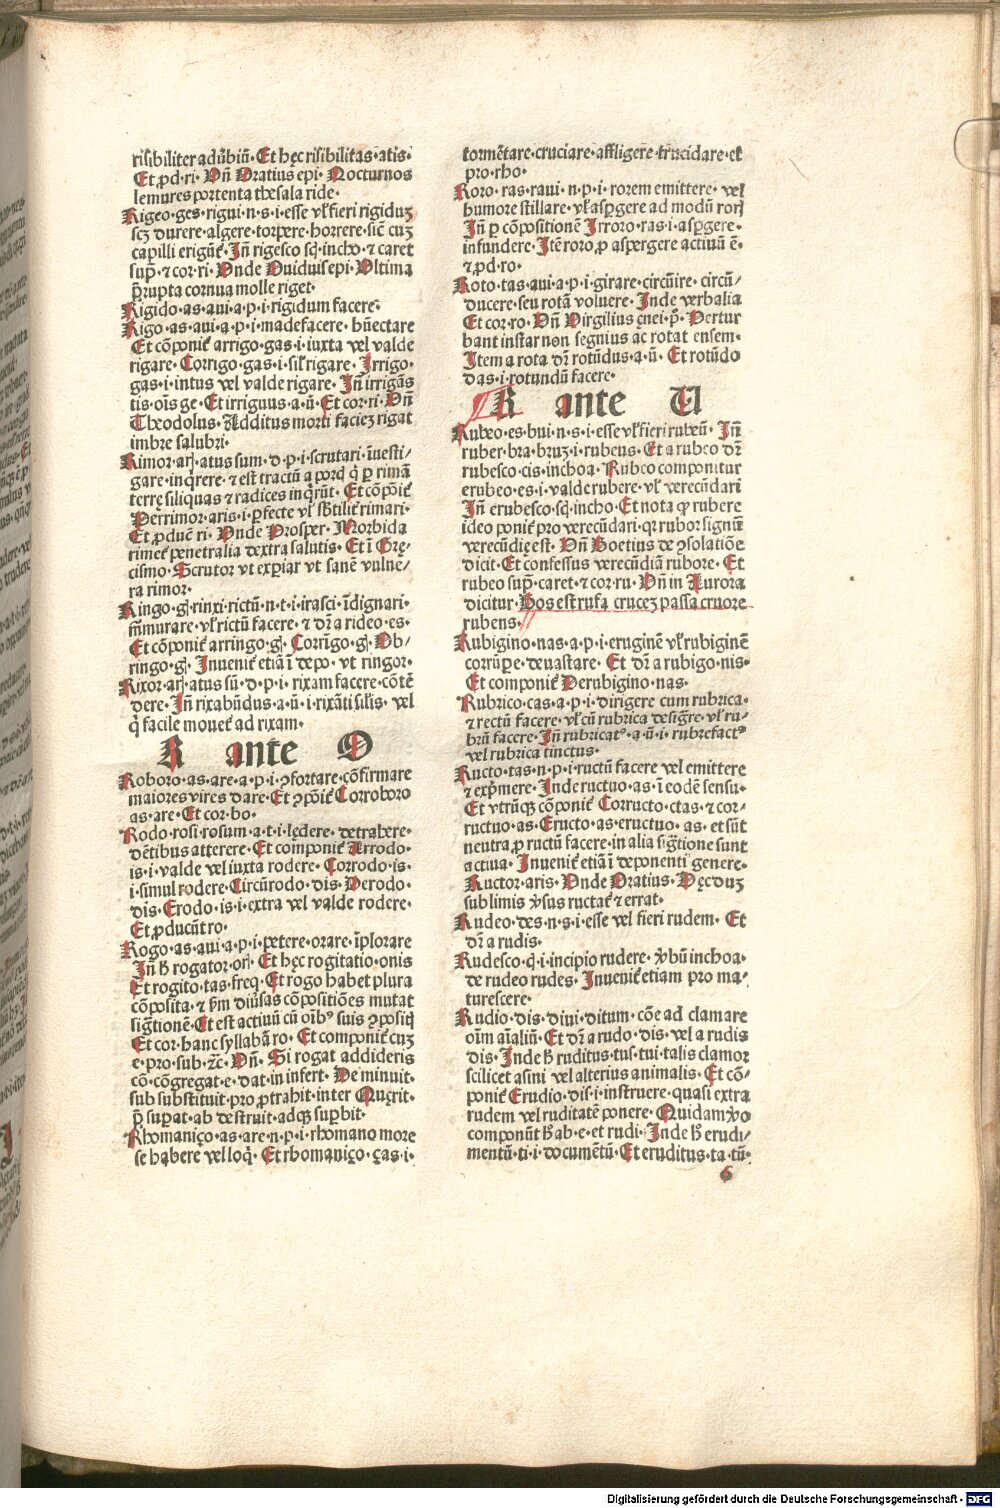 risibiliter adũbiũ. Et hęc risibilitas. atis.
Et ꝓd. ri. Vñ Oratius epi. Nocturnos
lemures portenta thesala ride.
Rigeo. ges. rigui. n. s. i. esse vł fieri rigiduȝ
scȝ durere. algere. torpere. horrere. sic̃ cuȝ
capilli erigũt̃. Jñ rigesco sq̃. incho. ⁊ caret
sup̃. ⁊ cor. ri. Vnde Ouidiusepi. Vltima
p̃rupta cornua molle riget.
Rigido. as. aui. a. p. i. rigidum facere.
Rigo. as. aui. a. p. i. madefacere. hũectare
Et cõponit̃ arrigo. gas. i. iuxta vel valde
rigare. Corrigo. gas. i. sił rigare. Irrigo.
gas. i. intus vel valde rigare. Jñ irrigãs
tis. oĩs ge. Et irriguus. a. ũ. Et cor. ri. Vñ
Theodolus. Additus morti facieȝ rigat
imbre salubri.
Rimor. arꝭ. atus sum. d. p. i. scrutari. iuesti/
gare. inq̃rere. ⁊ est tractũ a porcꝭ q̃ p rimã
terrę siliquas ⁊ radices inq̃rũt. Et cõpoit̃
Perrimor. aris. i. pfecte vł sb̃tilit̃ rimari.
Et ꝓduc̃ ri. Vnde Prosper. Morbida
rimet̃ penetralia dextra salutis. Et ĩ Grę/
cismo. Scrutor vt expiar vt sanẽ vulne/
ra rimor.
Ringo. gꝭ. rinxi. rictũ. n. t. i. irasci. ĩdignari.
m̃murare. vł rictũ facere. ⁊ dr̃ a rideo. es.
Et cõponit̃ arringo. gꝭ. Corrĩgo. gꝭ. Ob/
ringo. gꝭ. Inuenit̃ etiã ĩ depo. vt ringor.
Rixor. arꝭ. atus sũ. d. p. i. rixam facere. cõtẽ
dere. Jñ rixabũdus. a. ũ. i. rixãti silis. vel
q̃ facile mouet̃ ad rixam.
R ante O
Roboro. as. are. a. p. i. ꝯfortare. cõfirmare
maiores vires dare. Et ꝯpõit̃ Corroboro
as. are. Et cor. bo.
Rodo. rosi. rosum. a. t. i. lędere. detrahere.
dẽtibus atterere. Et componit̃ Arrodo.
is. i. valde vel iuxta rodere. Corrodo. is.
i. simul rodere. Circũrodo. dis. Derodo.
dis. Erodo. is. i. extra vel valde rodere.
Et ꝓducũt ro.
Rogo. as. aui. a. p. i. petere. orare. ĩplorare
Jñ h̃ rogator. orꝭ. Et hęc rogitatio. onis
Et rogito. tas. freq̃. Et rogo habet plura
cõposita. ⁊ b̃m diũsas cõpositiões mutat
sig̃tionẽ. Et est actiuũ cũ oĩbꝰ suis ꝯpositꝭ
Et cor. hanc syllabã ro. Et componit̃ cuȝ
e. pro. sub. ⁊c̃. Vñ. Si rogat addideris
cõ. cõgregat. e. dat. in infert. De minuit.
sub substituit. pro ꝓtrahit. inter Quęrit.
p̃ supat. ab destruit. adqꝫ supbit.
Rhomaniço. as. are. n. p. i. rhomano more
se habere vel loq̃. Et rhomaniço. ças. i.
tormẽtare. cruciare. affligere. trucidare. et
pro. rho.
Roro. ras. raui. n. p. i. rorem emittere. vel
humore stillare. vł aspgere ad modũ rorꝭ
Jñ p compositionẽ Irroro. ras. i. aspgere.
infundere. Itẽ roro. ꝓ aspergere actiuũ ẽ.
⁊ ꝓd. ro.
Roto. tas. aui. a. p. i. girare. circũire. circũ/
ducere. seu rotã voluere. Inde verbalia
Et cor. ro. Vñ Virgilius ęnei. p̃. Pertur
bant instar non segnius ac rotat ensem.
Item a rota dr̃ rotũdus. a. ũ. Et rotũdo
das. i. rotundũ facere.
R ante U
Rubeo. es. bui. n. s. i. esse vł fieri rubeũ. Jñ
ruber. bra. bruȝ. i. rubeus. Et a rubeo dr̃
rubesco. cis. inchoa. Rubeo componitur
erubeo. es. i. valde rubere. vł verecũdari
Jñ erubesco. sq̃. incho. Et nota ꝙ rubere
ideo ponit̃ pro verecũdari. qꝛ rubor signũ
verecũdię est. Vñ Boetius de ꝯsolatiõe
dicit. Et confessus verecũdiã rubore. Et
rubeo sup̃. caret. ⁊ cor. ru. Vñ in Aurora
dicitur. Bos est rufa cruceȝ passa cruore
rubens.
Rubigino. nas. a. p. i. eruginẽ vł rubiginẽ
corrũpe. deuastare. Et dr̃ a rubigo. nis.
Et componit̃ Derubigino. nas.
Rubrico. cas. a. p. i. dirigere cum rubrica.
⁊ rectũ facere. vł cũ rubrica desig̃re. vł ru/
brũ facere. Jñ rubricatꝰ. a. ũ. i. rubrefactꝰ
vel rubrica tinctus.
Ructo. tas. n. p. i. ructũ facere vel emittere
⁊ exp̃mere. Inde ructuo. as. ĩ eodẽ sensu.
Et vtrũqꝫ cõponit̃ Corructo. ctas. ⁊ cor/
ructuo. as. Eructo. as. eructuo. as. et sũt
neutra. ꝓ ructũ facere. in alia sig̃tione sunt
actiua. Inuenit̃ etiã ĩ deponenti genere.
Ructor. aris. Vnde Oratius. Hęc duȝ
sublimis v̾sus ructat̃ ⁊ errat.
Rudeo. des. n. s. i. esse vel fieri rudem. Et
dr̃ a rudis.
Rudesco. q̃. i. incipio rudere. v̾bũ inchoa.
de rudeo rudes. Inuenit̃ etiam pro ma/
turescere.
Rudio. dis. diui. ditum. cõe ad clamare
oĩm aĩaliũ. Et dr̃ a rudo. dis. vel a rudis
dis. Inde h̃ ruditus. tus. tui. talis clamor
scilicet asini vel alterius animalis. Et cõ/
ponit̃ Erudio. dis. i. instruere. quasi extra
rudem vel ruditatẽ ponere. Quidam v̾o
componũt h̃ ab. e. et rudi. Inde h̃ erudi/
mentũ. ti. i. documẽtũ. Et eruditus. ta. tũ.
6
Digitalisierung gefördert durch die Deutsche Forschungsgemeinschaft - DFG